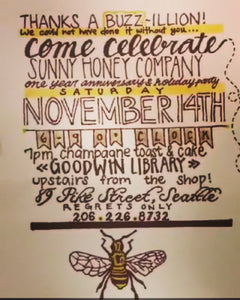 THANKS A BUZZ-ILLION!
We could not have done it without you...
come celebrate
SUNNY HONEY COMPANY
one year anniversary & holiday party
SATURDAY
NOVEMBER 14TH
6-9 O'CLOCK
7pm champagne toast & cake
«GOODWIN LIBRARY»
upstairs from the shop!
89 Pike Street, Seattle
REGRETS ONLY
206.226.8732